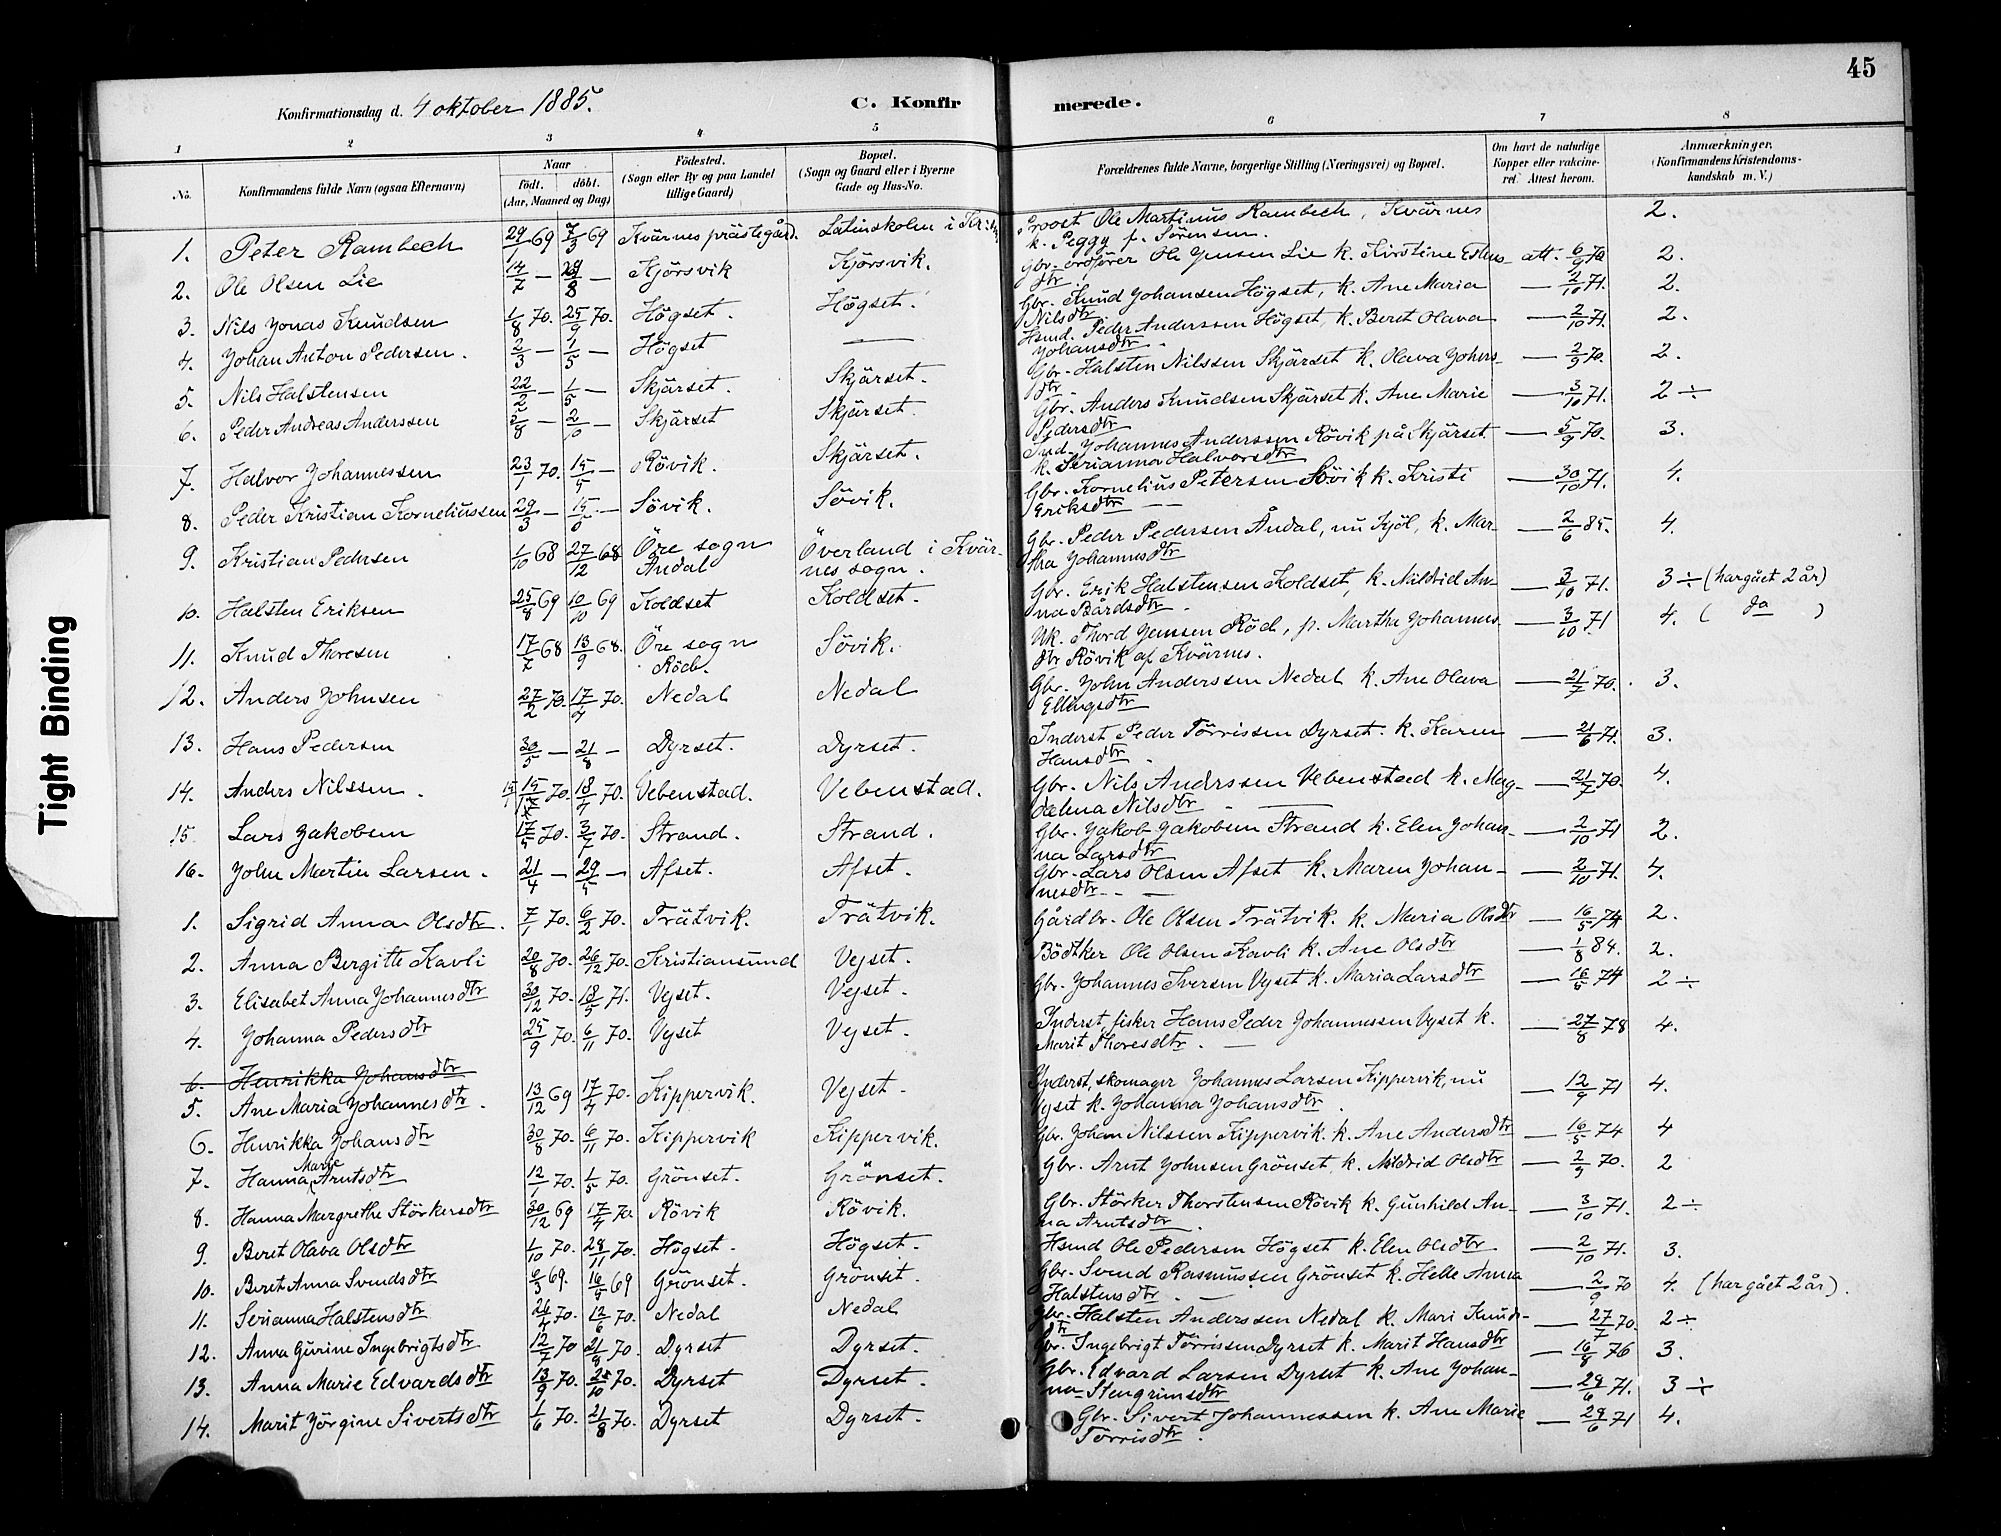 45
Konfirmationsdag d. 4 oktober 1885.
C. Konfirmerede.
1 2 3 4 5 6 7 8
No. Konfirmandens fulde Navn (ogsaa Efternavn) Naar født. døbt. (Aar, Maaned og Dag) Fødested. (Sogn eller By og paa Landet tillige Gaard) Bopæl. (Sogn og Gaard eller i Byerne Gade og Hus-No. Forældrenes fulde Navne, borgerlige Stilling (Næringsvei) og Bopæl. Om havt de naturlige Kopper eller vakcineret. Attest herom. Anmærkninger, (Konfirmandens Kristendomskundskab m. V.)
1. Peter Rambech 29/1 69 7/3 69 Kvärnes prästegård. Latinskolen i Kr. Provst Ole Martinus Rambech, Kvärnes k. Peggy f. Sörensen. 2.
2. Ole Olsen Lie 14/7 — /8 — Kjörsvik Kjörsvik. Gbr. ordförer Ole Jensen Lie k. Kirstine Estensdtr. att. 6/9 70 2.
3. Nils Jonas Knudsen 1/8 70. 25/9 70. Högset. Högset. Gbr. Knud Johansen Högset, k. Ane Maria Nilsdtr. — 2/10 71. 2.
4. Johan Anton Pedersen. 2/3 — 1/5 — Högset — Hsmd. Peder Anderssen Högset, k. Beret Olava Johansdtr. — 2/10 71. 2.
5. Nils Halstensen 22/2 — 1/5 — Skjärset. Skjärset. Gbr. Halsten Nilssen Skjärset k. Olava Johansdtr — 2/9 70. 2.
6. Peder Andreas Anderssen 5/8 — 2/10 — Skjärset Skjärset. Gbr. Anders Knudsen Skjärset k. Ane Marie Pedersdtr — 3/10 71. 2 ÷
7. Halvor Johannessen 23/1 70. 15/5 — Rövik. Skjärset. Ind. Johannes Anderssen Rövik på Skjärset k. Serianna Halvorsdtr — 5/9 70. 3.
8. Peder Kristian Korneliussen 29/3 — 15/ — Sövik. Sövik. Gbr. Kornelius Petersen Sövik k. Kristi Eriksdtr — 30/10 71. 4.
9. Kristian Pedersen 1/10 68 27/12 68 Öre sogn Åndal Överland i Kvärnes sogn. Gbr. Peder Pedersen Åndal, nu Kjöl, k. Martha Johannesdtr — 2/6 85. 4.
10. Halsten Eriksen 25/8 69 10/10 69 Koldset Koldset. Gbr. Erik Halstensen Koldset, k. Mildrid Anna Bårdsdtr. — 3/10 71. 3 ÷ (har gået 2 år)
11. Knud Thoresen 17/7 68 13/9 68. Öre sogn Röd. Sövik. Uk. Thord Jenssen Röd, p. Martha Johannesdtr Rövik af Kvärnes. — 3/10 71 4. ( do )
12. Anders Johnsen 27/2 70. 17/4 70. Nedal Nedal Gbr. John Anderssen Nedal k. Ane Olava Ellingsdtr — 21/7 70. 3.
13. Hans Pedersen 30/5 — 21/8 — Dyrset. Dyrset. Inderst Peder Törrissen Dyrset. k. Karen Hansdtr. — 21/6 71. 3.
14. Anders Nilssen. 15/1 70. 18/4 70. Vebenstad. Vebenstad. Gbr. Nils Anderssen Vebenstad k. Magdalena Nilsdtr — 21/7 70. 4.
15. Lars Jakobsen 17/5 70. 3/7 70. Strand. Strand. Gbr. Jakob Jakobsen Strand k. Elen Johanna Larsdtr — 2/10 71 2.
16. John Martin Larsen. 21/4 — 29/5 — Afset. Afset. Gbr. Lars Olsen Afset k. Maren Johannesdtr — 2/10 71. 4.
1. Sigrid Anna Olsdtr. 7/1 70. 6/2 70. Trätvik. Trätvik. Gårdbr. Ole Olsen Trätvik. k. Maria Olsdtr — 16/5 74 2.
2. Anna Bergitte Kavli 20/8 70. 26/12 70. Kristiansund Vejset. Bödtker Ole Olsen Kavli k. Ane Olsdtr — 1/8 84. 2.
3. Elisabet Anna Johannesdtr 30/12 70. 18/5 71. Vejset. Vejset. Gbr. Johannes Iversen Vejset k. Maria Larsdtr — 16/5 74 2 ÷
4. Johanna Pedersdtr 25/9 70. 6/11 70. Vejset Vejset. Inderst, fisker Hans Peder Johannessen Vejset k. Marit Thoresdtr. — 27/8 78 4.
6. Henrikka Johansdtr
5. Ane Maria Johannesdtr. 13/12 69 17/4 70. Kippervik. Vejset. Inderst, skomager Johannes Larsen Kippervik, nu Vejset k. Johanna Johansdtr. — 12/9 71 4.
6. Henrikka Johansdtr 30/8 70. 6/11 70. Kippervik Kippervik. Gbr. Johan Nilssen Kippervik. k. Ane Andersdtr — 16/5 74 4
7. Hanna Marie Arntsdtr 12/1 70. 1/5 70. Grönset. Grönset. Gbr. Arnt Johnsen Grönset. k. Mildrid Olsdtr — 2/9 70. 2
8. Hanna Margrethe Störkersdtr 30/12 69 17/4 70. Rövik Rövik. Gbr. Störker Thorstensen Rövik k. Gunhild Anna Arntsdtr. — 3/10 71. 2 ÷
9. Beret Olava Olsdtr 1/10 70. 28/11 70. Högset. Högset. Hsmd Ole Pedersen Högset k. Elen Olsdtr — 2/10 71. 3.
10. Beret Anna Svendsdtr 6/3 69. 16/5 69 Grönset. Grönset. Gbr. Svend Rasmussen Grönset k. Helle Anna Halstensdtr. — 2/9 70 4. (har gået 2 år).
11. Serianna Halstensdtr 24/4 70. 12/6 70. Nedal Nedal Gbr. Halsten Anderssen Nedal k. Mari Knudsdtr — 27/7 70. 2 ÷
12. Anna Gurine Ingebrigtsdtr 12/7 70 21/8 70. Dyrset Dyrset. Gbr. Ingebrigt Törrissen Dyrset k. Marit Hansdtr — 16/8 76 3.
13. Anna Marie Edvardsdtr 13/9 70. 2/10 70. Dyrset Dyrset. Gbr. Edvard Larsen Dyrset k. Ane Johanna Stengrimsdtr — 29/6 71. 3 ÷
14. Marit Jörgine Sivertsdtr 1/6 70. 21/8 70. Dyrset Dyrset. Gbr. Sivert Johannessen k. Ane Marie Törrisdtr. — 29/6 71 4.
Tight Binding